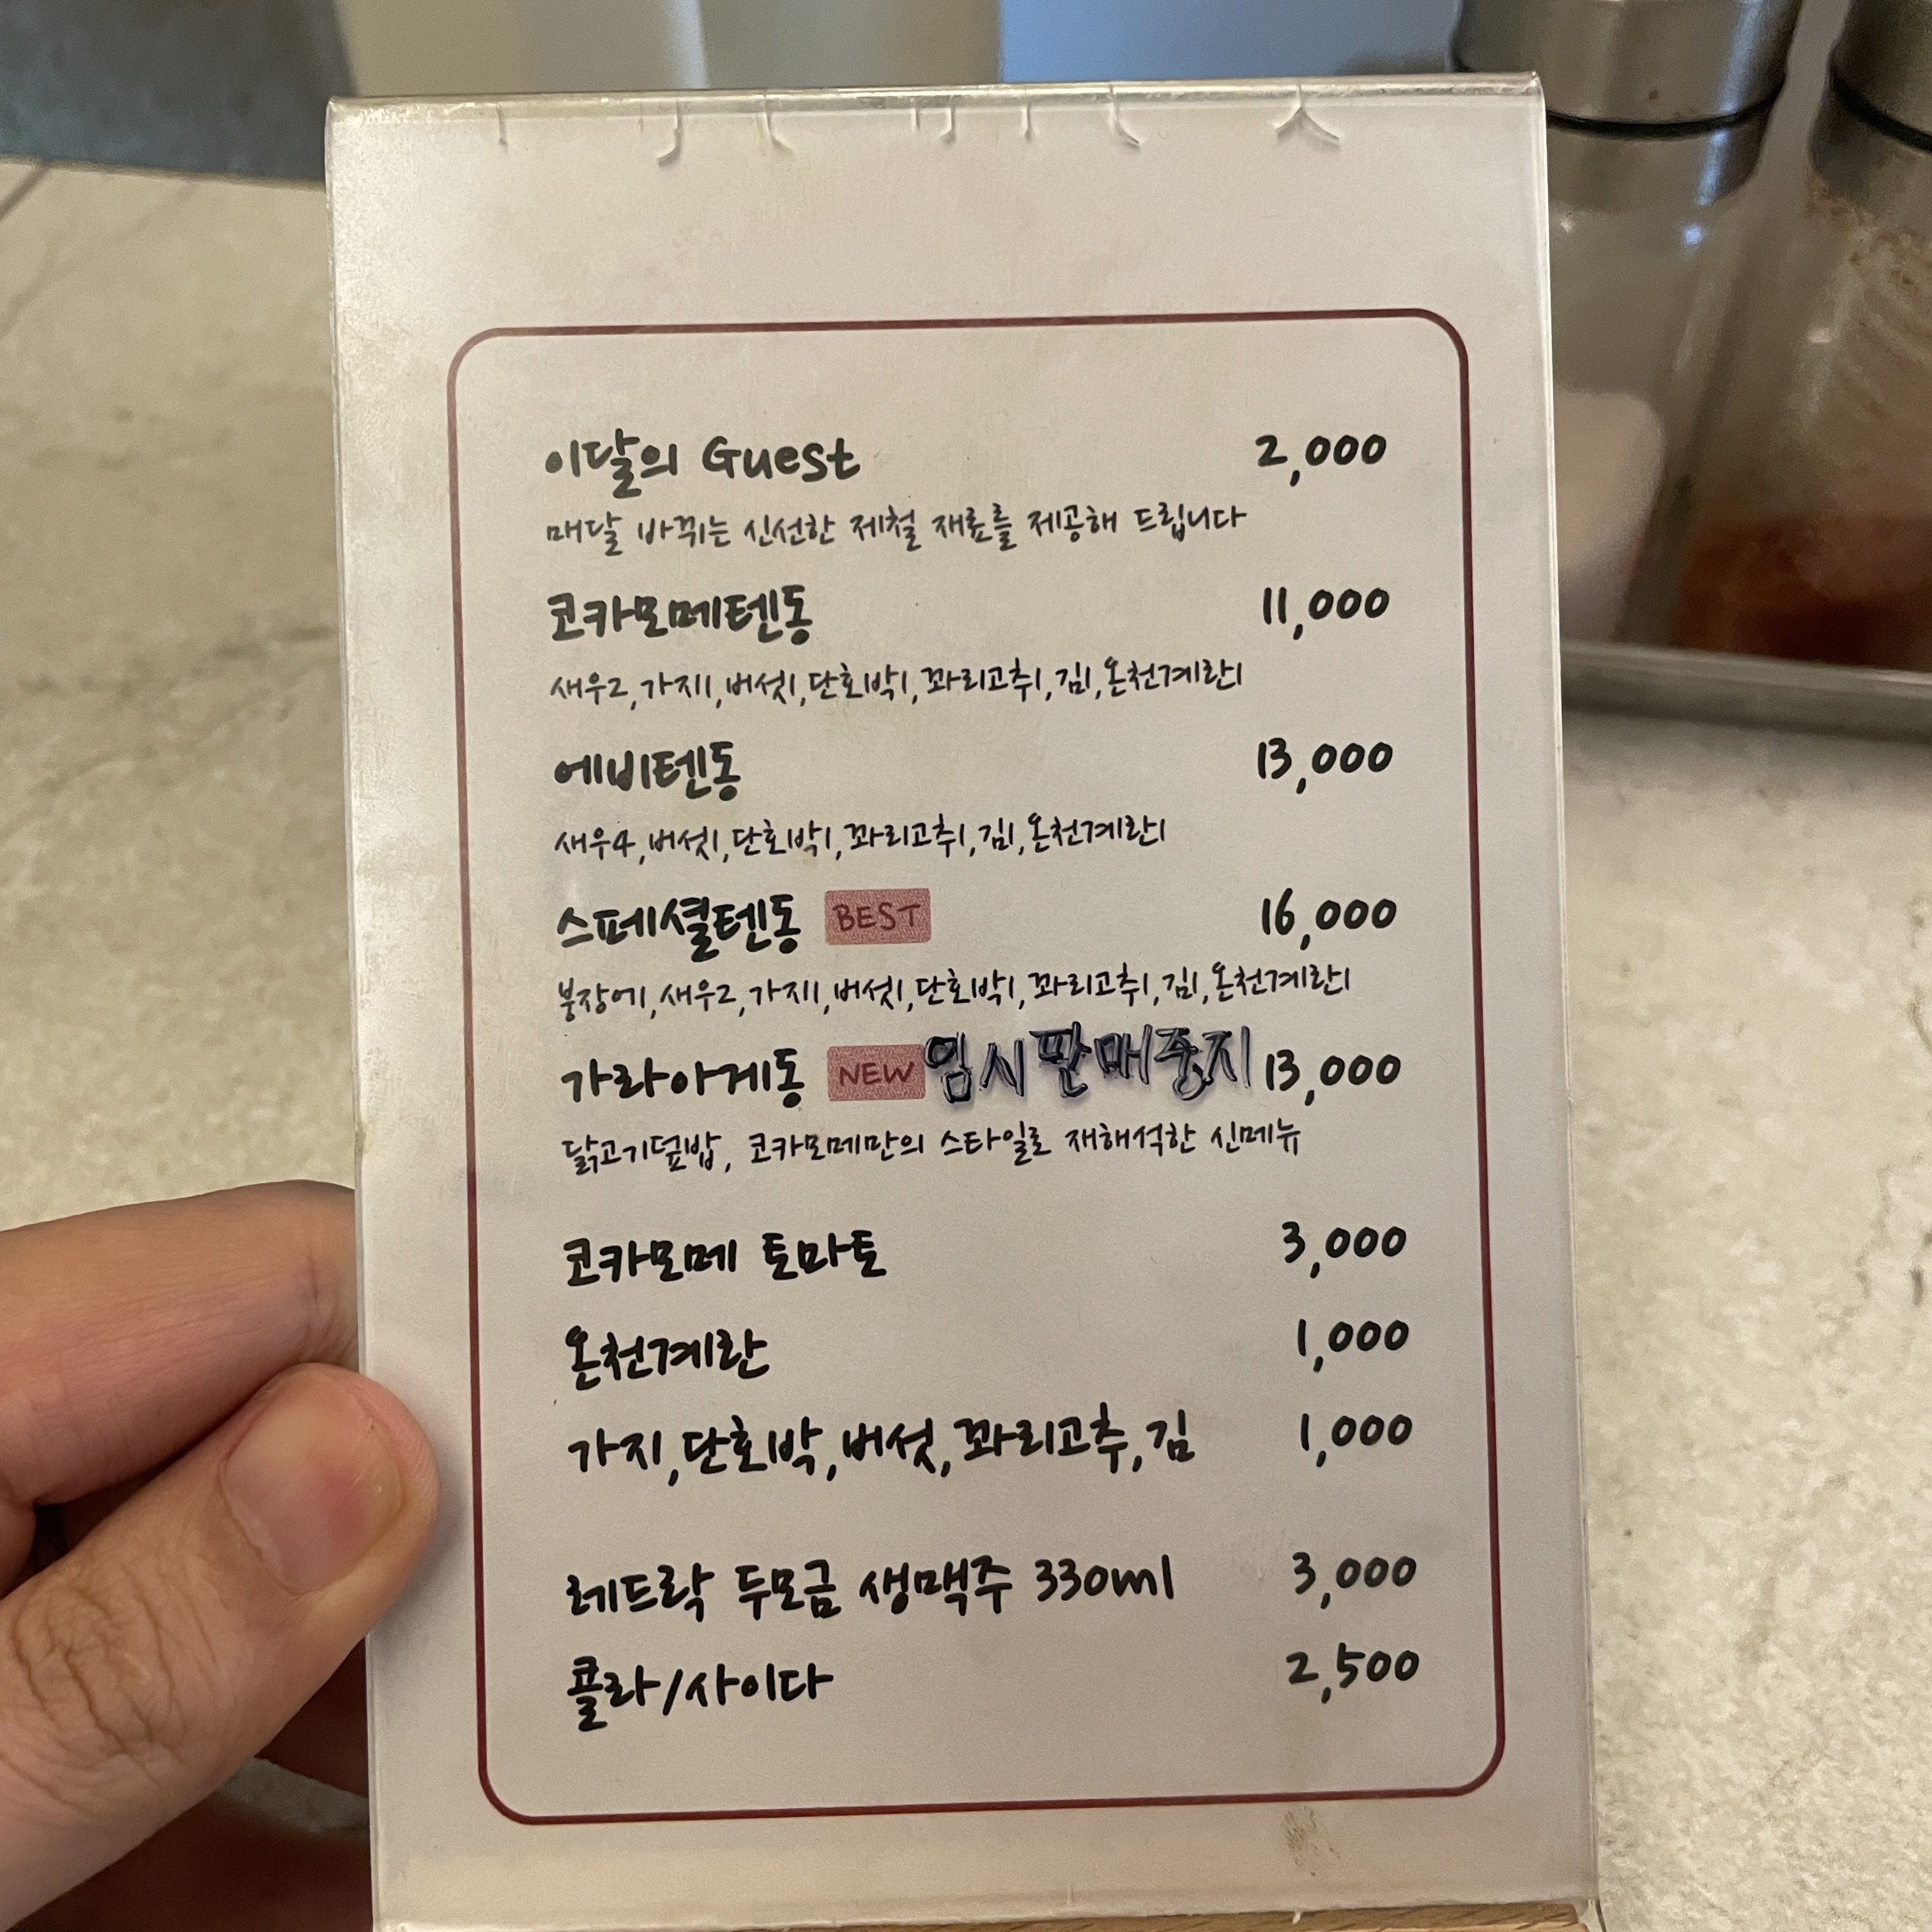 이달의 Guest 2,000
매달 바뀌는 신선한 제철 재료를 제공해 드립니다
코카모메텐동 11,000
새우2,가지1,버섯1,단호박1,꽈리고추1,김1,온천계란1
에비텐동 13,000
새우4,버섯1,단호박1,꽈리고추1,김1,온천계란1
스페셜텐동 BEST 16,000
붕장어1,새우2,가지1,버섯1,단호박1,꽈리고추1,김1,온천계란1
가라아게동 NEW 임시판매중지 13,000
닭고기덮밥, 코카모메만의 스타일로 재해석한 신메뉴
코카모메 토마토 3,000
온천계란 1,000
가지,단호박,버섯,꽈리고추,김 1,000
레드락 두모금 생맥주 330ml 3,000
콜라/사이다 2,500